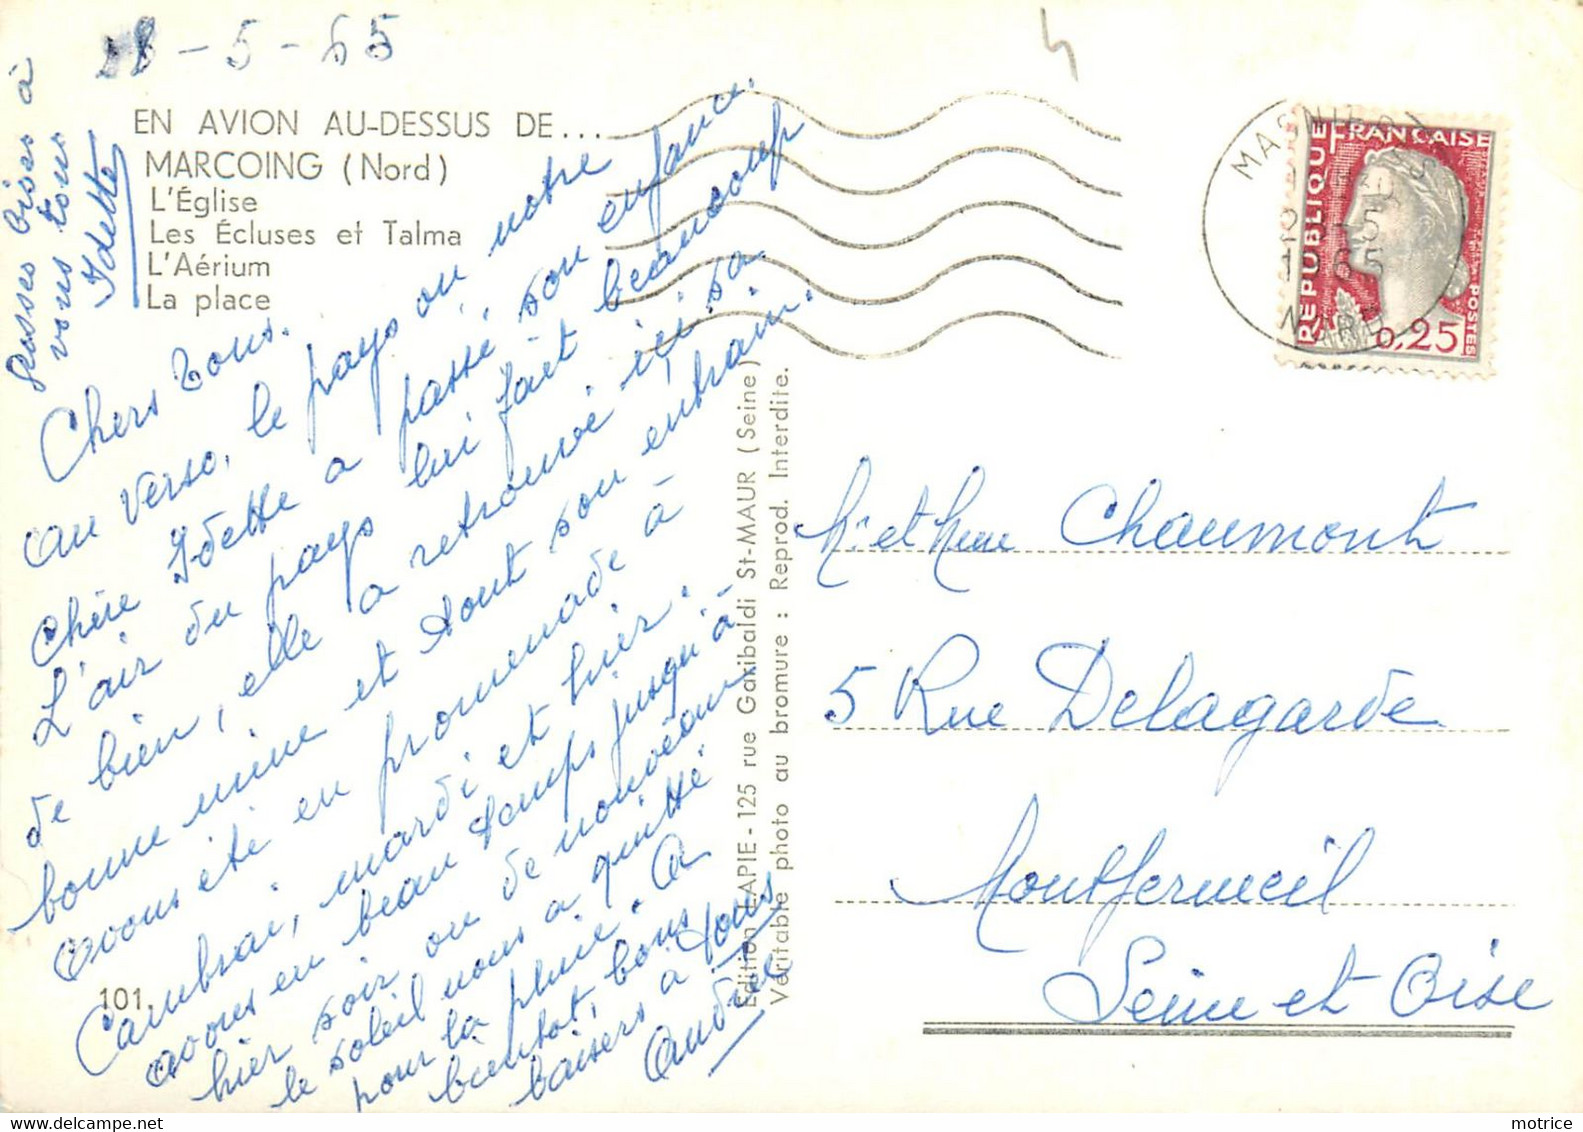 18-5-65
EN AVION AU-DESSUS DE...
MARCOING (Nord)
L'Église
Les Écluses et Talma
L'Aérium
La place
Chers tous.
au verso, le pays ou notre
Chère Idette a passé, son enfance.
L'air du pays lui fait beaucoup
de bien, elle a retrouvé ici sa
bonne mine et tout son entrain.
avons été en promenade à
Cambrai, mardi et hier.
avons eu beau temps jusqu'à
hier soir ou de nouveau
le soleil nous a quitté
pour la pluie. A
bientot, bons
baisers à tous
Andrée
Grosses bises à
vous tous
Idette
101.
Edition LAPIE - 125 rue Garibaldi St-MAUR (Seine)
Véritable photo au bromure : Reprod. Interdite.
RÉPUBLIQUE FRANÇAISE
POSTES
0,25
Mr et Mme Chaumont
5 Rue Delagarde
Montfermeil
Seine et Oise
motrice